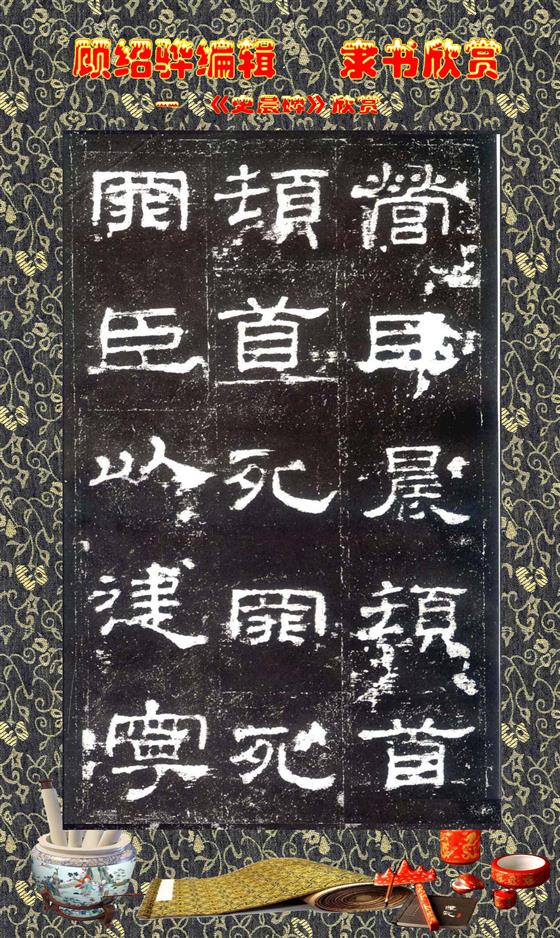 顾绍骅编辑 隶书欣赏
一 《史晨碑》欣赏
營臣晨頓首
頓首死罪死
罪臣以建寧